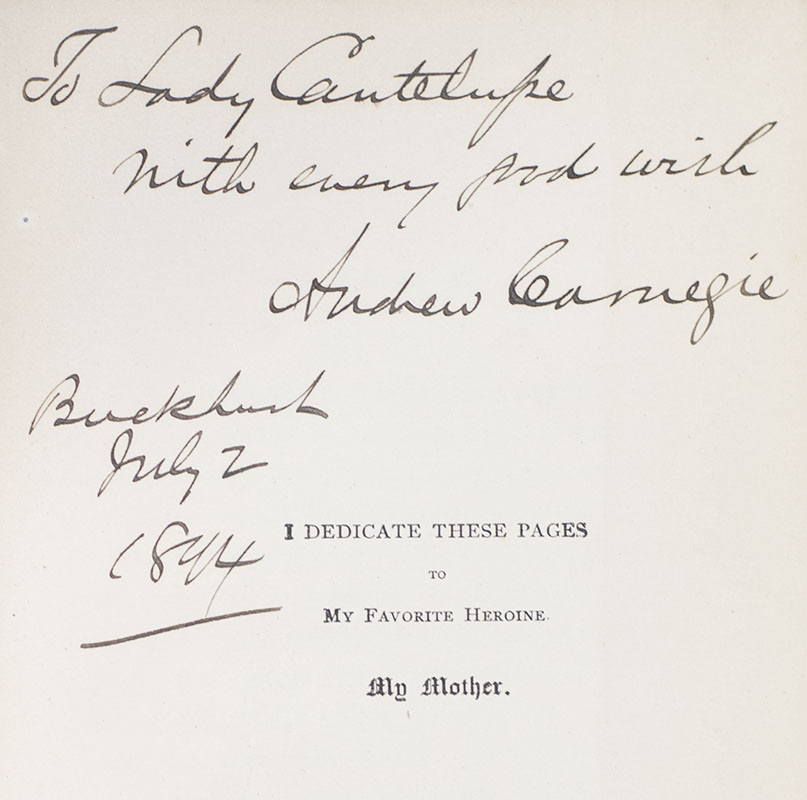 To Lady Cantelupe
with every good wish
Andrew Carnegie
Buckhurst
July 2
1894
I DEDICATE THESE PAGES
TO
MY FAVORITE HEROINE
My Mother.